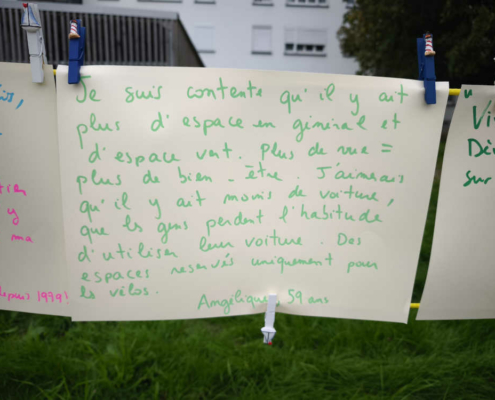 Je suis contente qu'il y ait
plus d'espace en général et
d'espace vert. Plus de vue =
plus de bien-être. J'aimerais
qu'il y ait moins de voiture,
que les gens perdent l'habitude
d'utiliser leur voiture. Des
espaces reservés uniquement pour
les vélos.
Angélique, 59 ans
y
ma
depuis 1999?
sur